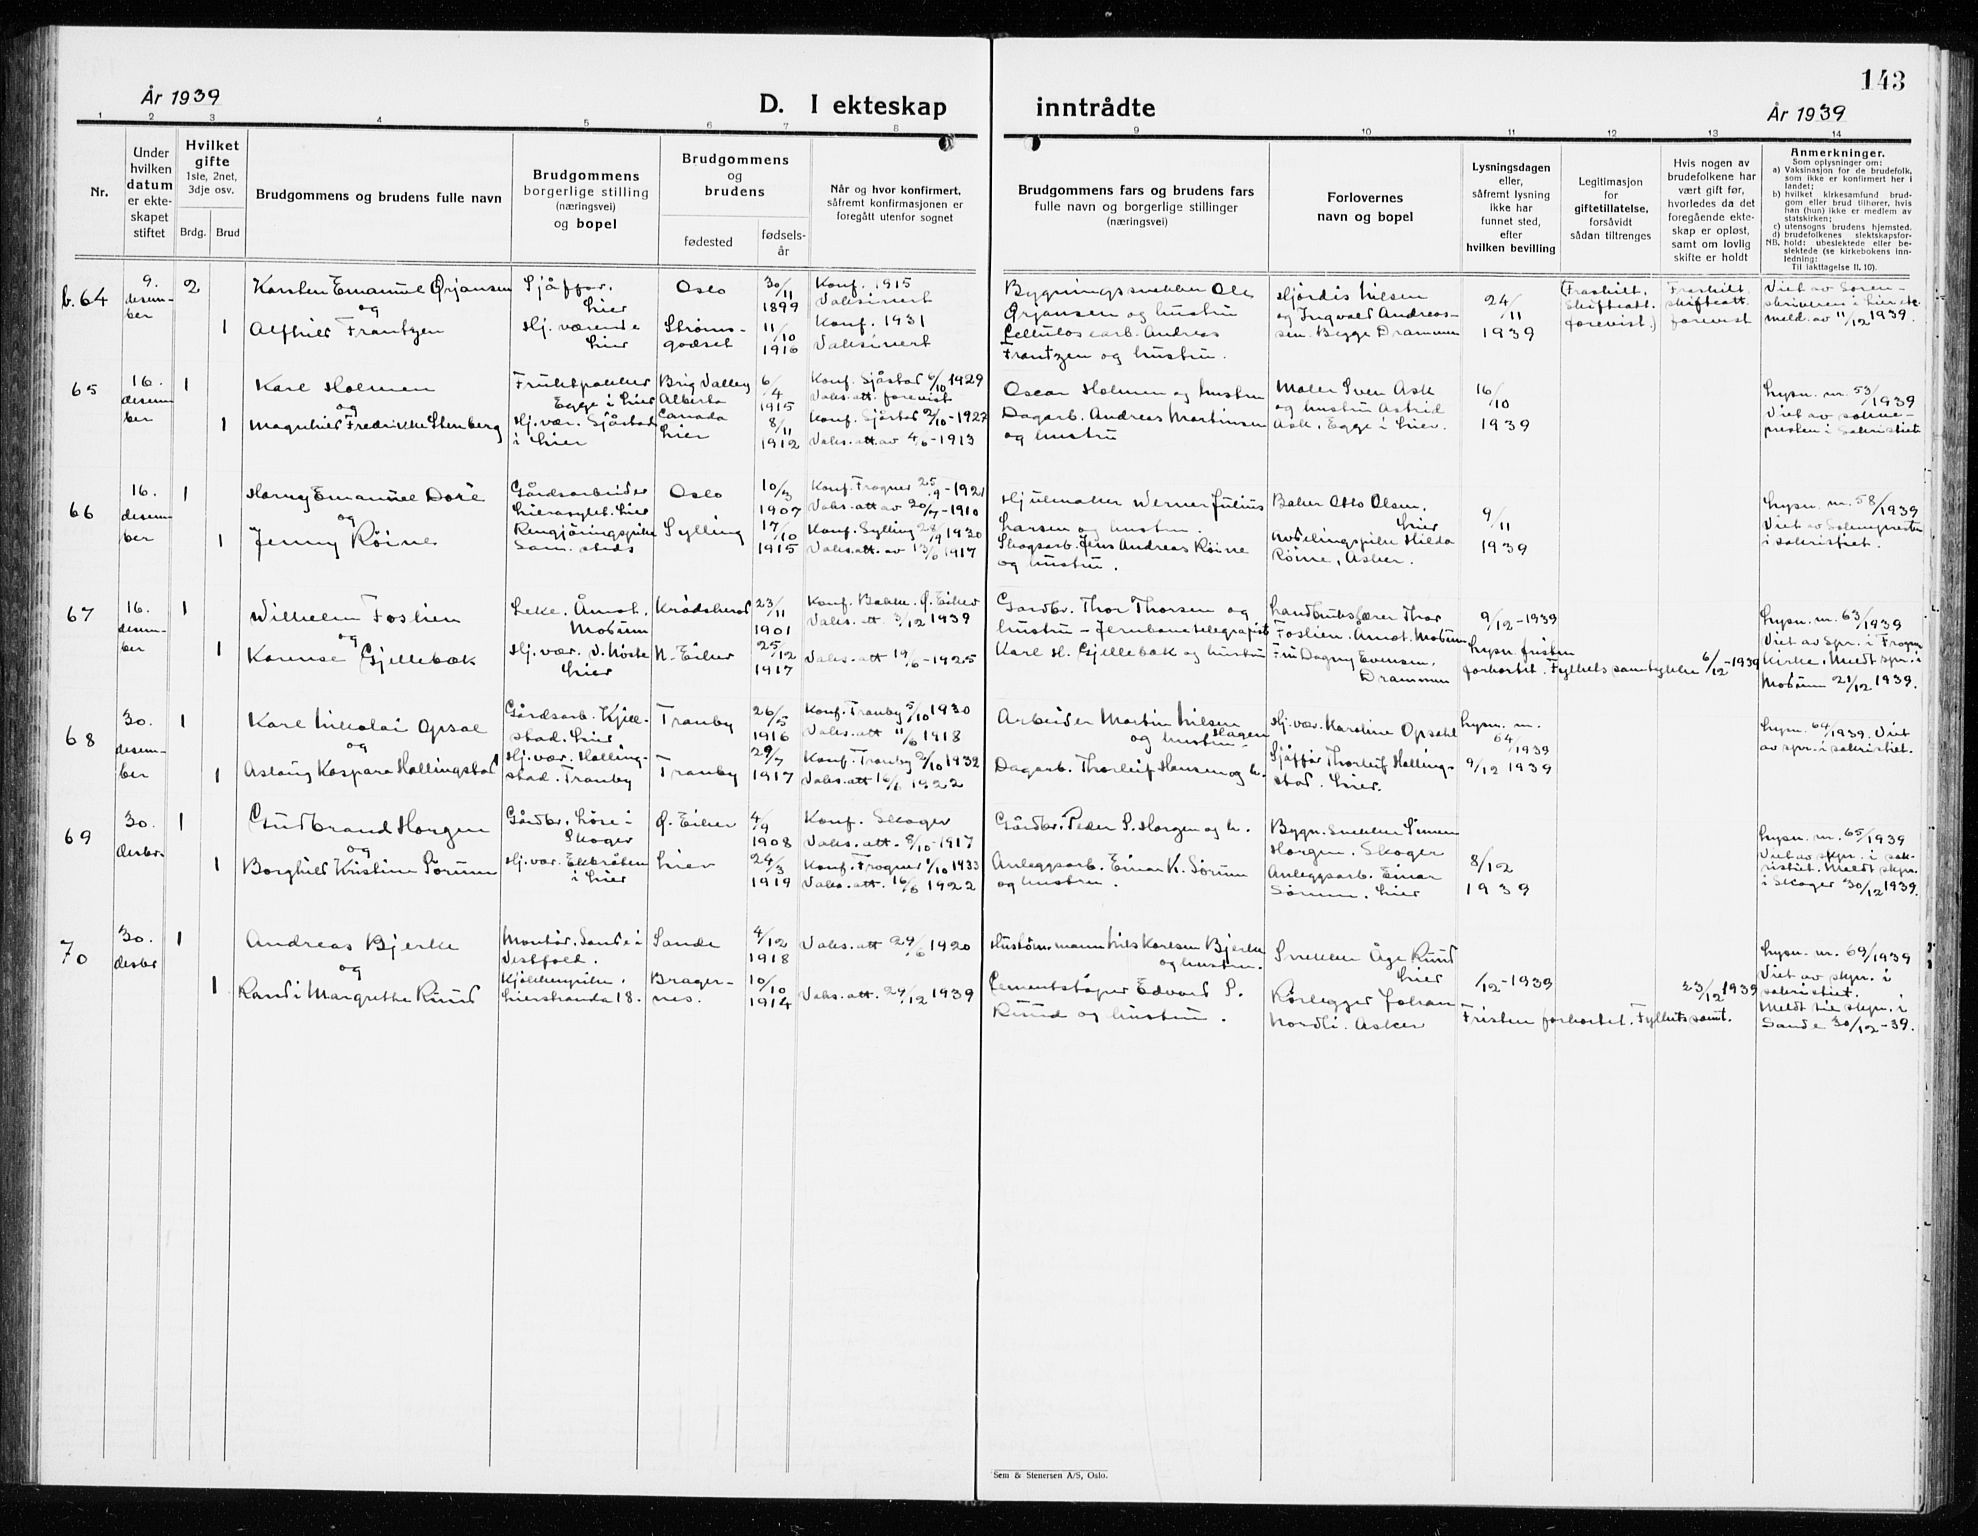 143
År 1939
D. I ekteskap inntrådte
År 1939
1 2 3 4 5 6 7 8 9 10 11 12 13 14
Nr.
Under hvilken datum er ekteskapet stiftet
Hvilket gifte 1ste, 2net, 3dje osv.
Brdg. Brud
Brudgommens og brudens fulle navn
Brudgommens borgerlige stilling (næringsvei) og bopel
Brudgommens og brudens
fødested
fødselsår
Når og hvor konfirmert, såfremt konfirmasjonen er foregått utenfor sognet
Brudgommens fars og brudens fars fulle navn og borgerlige stillinger (næringsvei)
Forlovernes navn og bopel
Lysningsdagen eller, såfremt lysning ikke har funnet sted, efter hvilken bevilling
Legitimasjon for giftetillatelse, forsåvidt sådan tiltrenges
Hvis nogen av brudefolkene har vært gift før, hvorledes da det foregående ekteskap er opløst, samt om lovlig skifte er holdt
Anmerkninger.
Som oplysninger om:
a) Vaksinasjon for de brudefolk, som ikke er konfirmert her i landet;
b) hvilket kirkesamfund brudgom eller brud tilhører, hvis han (hun) ikke er medlem av statskirken;
c) utensogns brudens hjemsted.
d) brudefolkenes slektskapsforhold: ubeslektede eller beslektede (se kirkebokens innledning:
NB.
Til iakttagelse II. 10).
b.64
9. desember
2
Karsten Emanuel Ørjansen
og
1
Alfhild Frantzen
Sjåffør. Lier
Hj. værende Lier
Oslo
Strømsgodset
30/11 1899
11/10 1916
Konf. 1915
Vaksinert
Konf. 1931
Vaksinert
Bygningssnekker Ole
Ørjansen og hustru
Cellulosearb. Andreas
Frantzen og hustru.
Hjørdis Nilsen
og Ingvald Andreassen. Begge Drammen
24/11 1939
(Fraskilt. Skifteatt. forevist.)
Fraskilt. Skifteatt. forevist
Viet av Sorenskriveren i Lier etc.
meld. av 11/12 1939.
65
16. desember
1
Karl Holmen
og
1
Magnhild Fredrikke Stenberg
Fruktpakker
Egge i Lier
Hj. vær. Sjåstad
i Lier
Brig Valley
Alberta
Canada
Lier
6/4 1915
8/11 1912
Konf. Sjåstad 6/10 1929
Vaks. att. forevist
Konf. Sjåstad 2/10-1927
Vaks. att. av 4/6-1913
Oscar Holmen og hustru
Dagarb. Andreas Martinsen
og hustru
Maler Sven Ask
og hustru Astrid
Ask, Egge i Lier.
16/10 1939
Lysn. nr. 53/1939
Viet av sognepresten i sakristiet
66
16. desember
1
Harry Emanuel Doré
og
1
Jenny Røine
Gårdsarbeider
Lierasylet. Lier
Rengjøringspike
Sam. steds
Oslo
Sylling
10/3 1907
17/10 1915
Konf. Frogner 25/9-1921
Vaks. att. av 20/7-1910
Konf. Sylling 28/9 1930
Vaks. att. av 13/6 1917
Hjulmaker Werner Julius
Larsen og hustru.
Skogsarb. Jens Andreas Røine
og hustru.
Baker Otto Olsen.
Lier
Avdelingspike Hilda
Røine, Asker.
9/11 1939
Lysn. nr. 58/1939
Viet av Sogneprest
i sakristiet.
67
16. desember
1
Wilhelm Foslien
og
1
Karense Gjellebæk
Leke. Åmot.
Modum
Hj. vær. V. Nøste
Lier
Krødsherad
N. Eiker
23/11 1901
25/12 1917
Konf. Bakke. Ø. Eiker
Vaks. att. 3/12 1939
Vaks. att 19/6-1925
Gårdbr. Thor Thorsen og
hustru - Jernbanetelegrafist
Karl H. Gjellebæk og hustru
Landbrukslærer Thor
Foslien. Åmot. Modum
Fru Dagny Evensen.
Drammen
9/12-1939
Lysn. fristen
forkortet. Fylkets samtykke 6/12-1939
Lysn. nr. 63/1939
Viet av Spr. i Frogner
Kirke. Meldt spr. i
Modum 21/12 1939.
68
30. desember
1
Karl Nikolai Opsal
og
1
Aslaug Kaspara Hallingstad
Gårdsarb. Kjellstad. Lier
Hj. vær. Hallingstad. Tranby
Tranby
Tranby
26/5 1916
29/7 1917
Konf. Tranby 5/10 1930
Vaks. att 11/6 1918
Konf. Tranby 2/10 1932
Vaks. att 16/6 1922
Arbeider Martin Nilsen
Hagen
og hustru.
Dagarb. Thorleif Hansen og h.
Hj. vær. Karoline Opsahl
Sjåffør Thorleif Hallingstad. Lier.
Lysn. nr.
64/1939
9/12 1939
Lysn. 64/1939. Viet
av spr. i sakristiet.
69
30. desbr
1
Gudbrand Horgen
og
1
Borghild Kristine Sørum
Gårdbr. Løse i
Skoger
Hj. vær. Ekbråten
i Lier
Ø. Eiker
Lier
4/9 1908
24/3 1919
Konf. Skoger
Vaks. att. 8/10-1917
Konf. Frogner 1/10 1933
Vaks. att. 16/6 1922
Gårdbr. Peder S. Horgen og h.
Anleggsarb. Einar K. Sørum
og hustru.
Bygn. Snekker Simen
Horgen. Skoger
Anleggsarb. Einar
Sørum. Lier
8/12 1939
Lysn. nr. 65/1939
Viet av skpr. i sakristiet. Meldt skpr.
i Skoger 30/12 1939.
70
30. desbr
1
Andreas Bjerke
og
1
Randi Margrethe Ruud
Montør. Sande i
Vestfold.
Kjøkkenpike.
Lierstranda 18.
Sande
Bragernes.
4/12 1918
10/10 1914
Vaks. att 29/6 1920
Vaks. att. 29/12 1939
Nils Karlsen Bjerke
og hustru.
Cementstøper Edvard S.
Ruud og hustru.
Snekker Åge Ruud
Lier
Rørlegger Johan
Nordli. Asker
/12-1939
23/12 1939
Fristen forkortet. Fylkets samt.
Lysn. nr. 69/1939
Viet av skpr. i
sakristiet.
Meldt til skpr. i
Sande 30/12-39.
Sem & Stenersen A/S, Oslo.